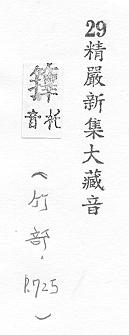 29精嚴新集大藏音
托音
(竹部.P.725)